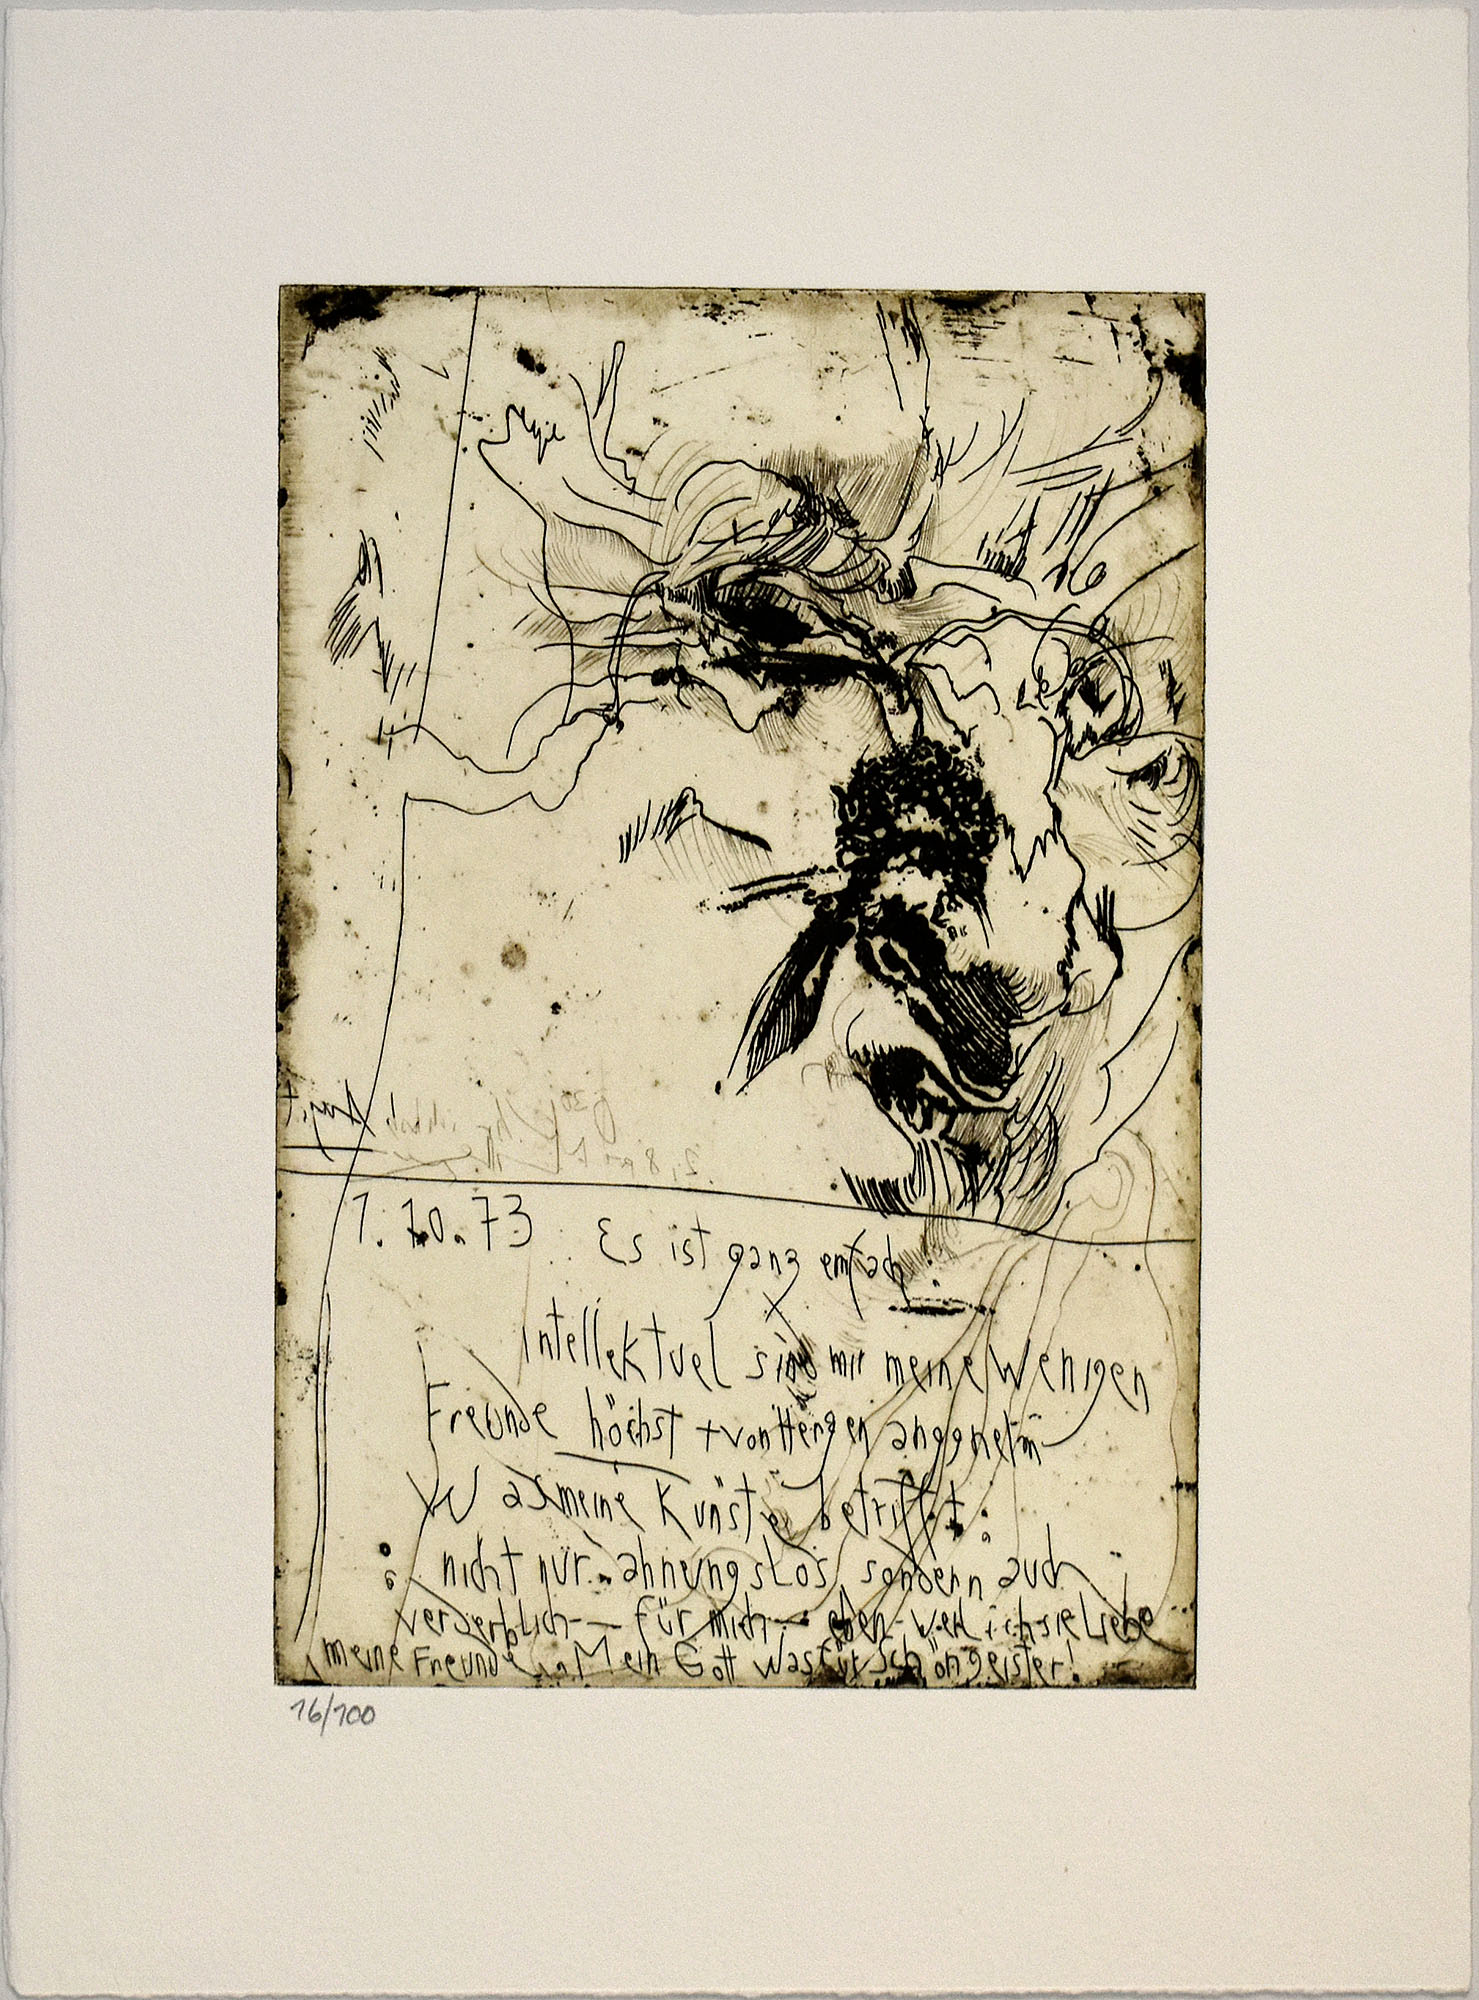 1.10.73 Es ist ganz einfach:
intellektuel sind mir meine wenigen
Freunde höchst + von Herzen angenehm
Was meine Künste betrifft:
: nicht nur ahnungslos sondern auch
verderblich — für mich — eben weil ich sie Liebe
meine Freunde Mein Gott was für Schöngeister!
16/100